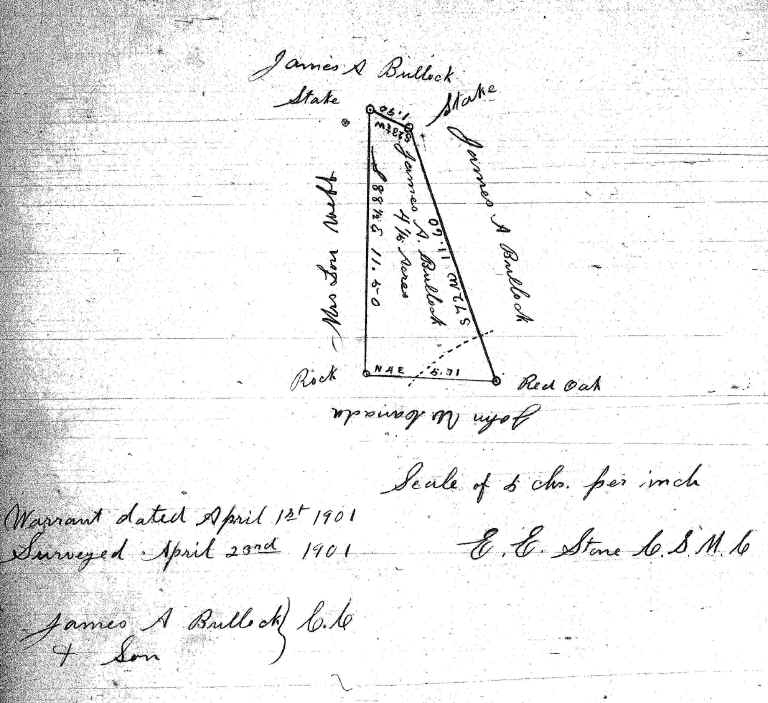 James A Bullock
Stake
Stake
1.90
S 28 W
James A Bullock
Mrs Lou Webb
S 88½ E 11.50
James A. Bullock
Acres
S 72 W 11.60
Rock
N 4 E 5.71
Red Oak
John W Canada
Scale of 5 chs. per inch
Warrant dated April 1st 1901
Surveyed April 23rd 1901
E. E. Stone C. S. M. C
James A Bullock } C. C
+ Son